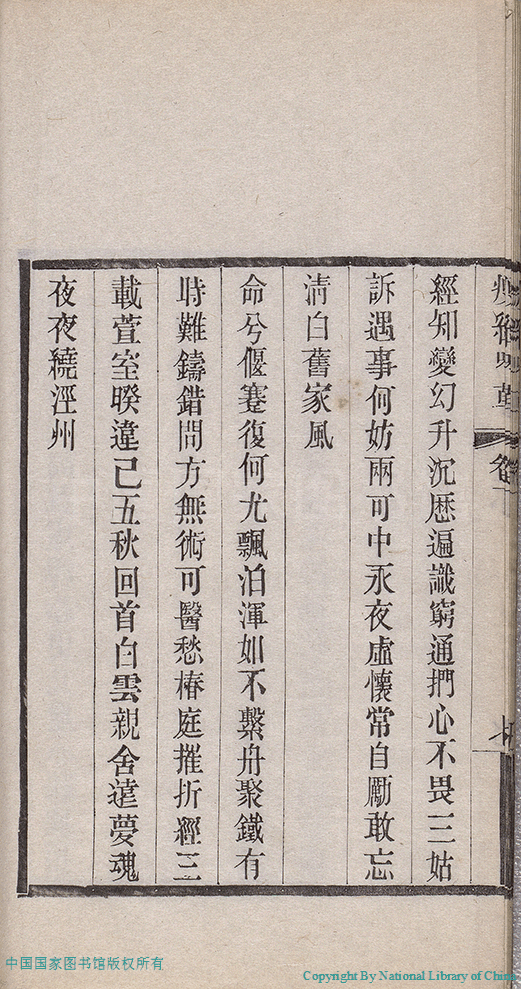 經知變幻升沉歷遍識窮通捫心不畏三姑
訴遇事何妨兩可中永夜虛懷常自勵敢忘
淸白舊家風
命兮偃蹇復何尤飄泊渾如不繫舟聚鐵有
時難鑄錯問方無術可醫愁椿庭摧折經三
載萱室暌違已五秋回首白雲親舍遠夢魂
夜夜繞涇州
中国国家图书馆版权所有
Copyright By National Library of China